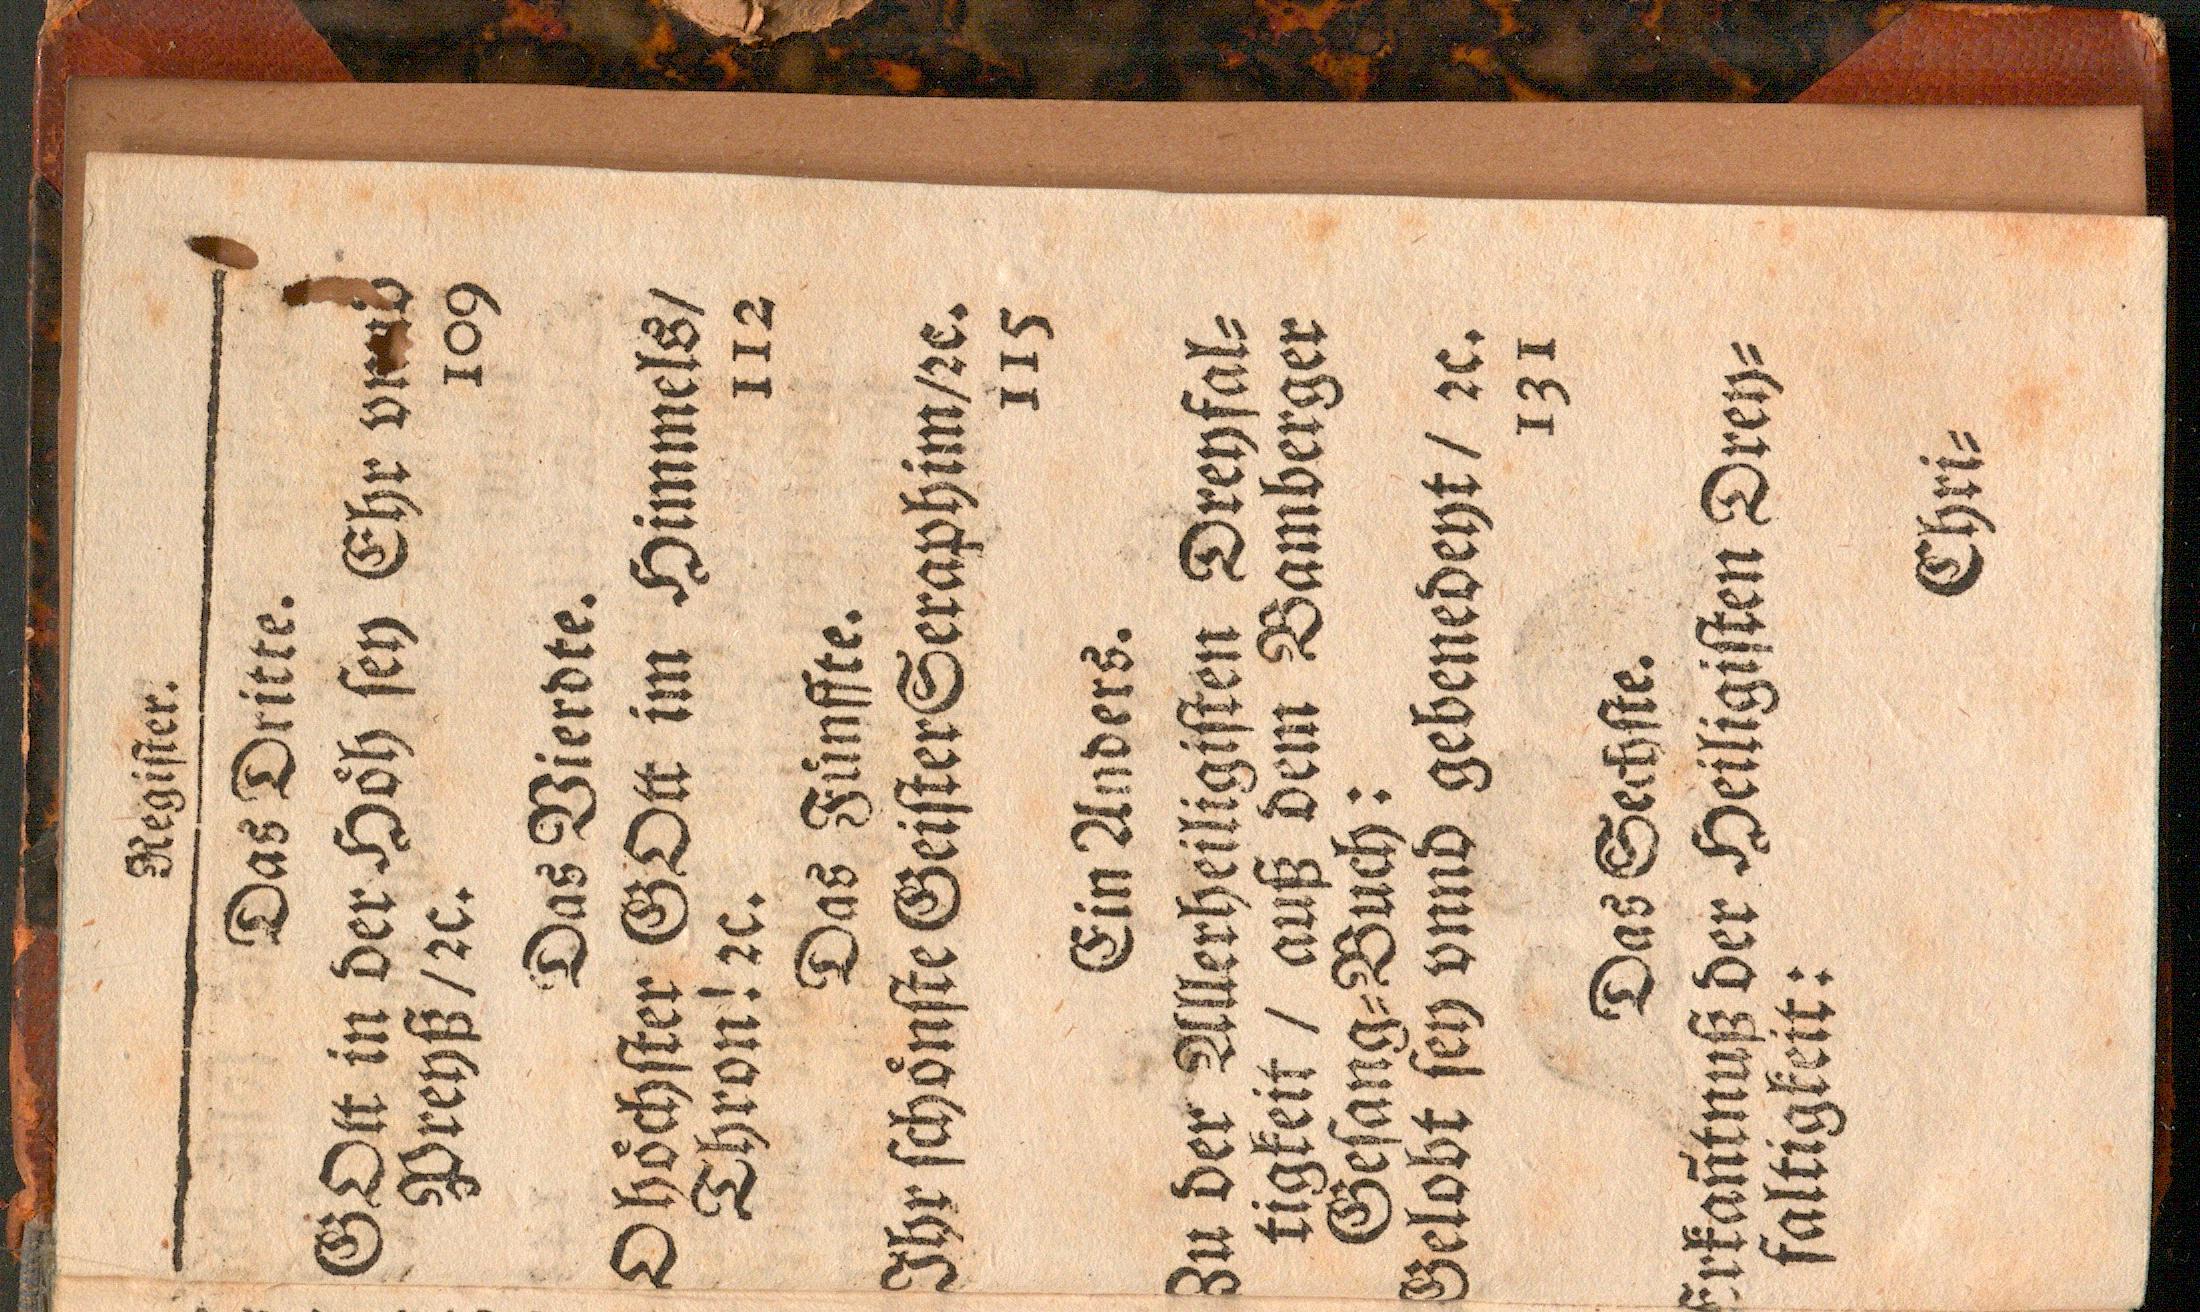 Register.
Das Dritte.
GOtt in der Höh sey Ehr vnnd
Preyß /ꝛc. 109
Das Vierdte.
O höchster GOtt im Himmels/
Thron! ꝛc. 112
Das Fünffte.
Ihr schönste Geister Seraphim/ꝛc.
115
Ein Anders.
Zu der Allerheiligisten Dreyfal⸗
tigkeit / auß dem Bamberger
Gesang⸗Buch:
Gelobt sey vnnd gebenedeyt / ꝛc.
131
Das Sechste.
Erkañtnuß der Heiligisten Drey⸗
faltigkeit:
Chri⸗